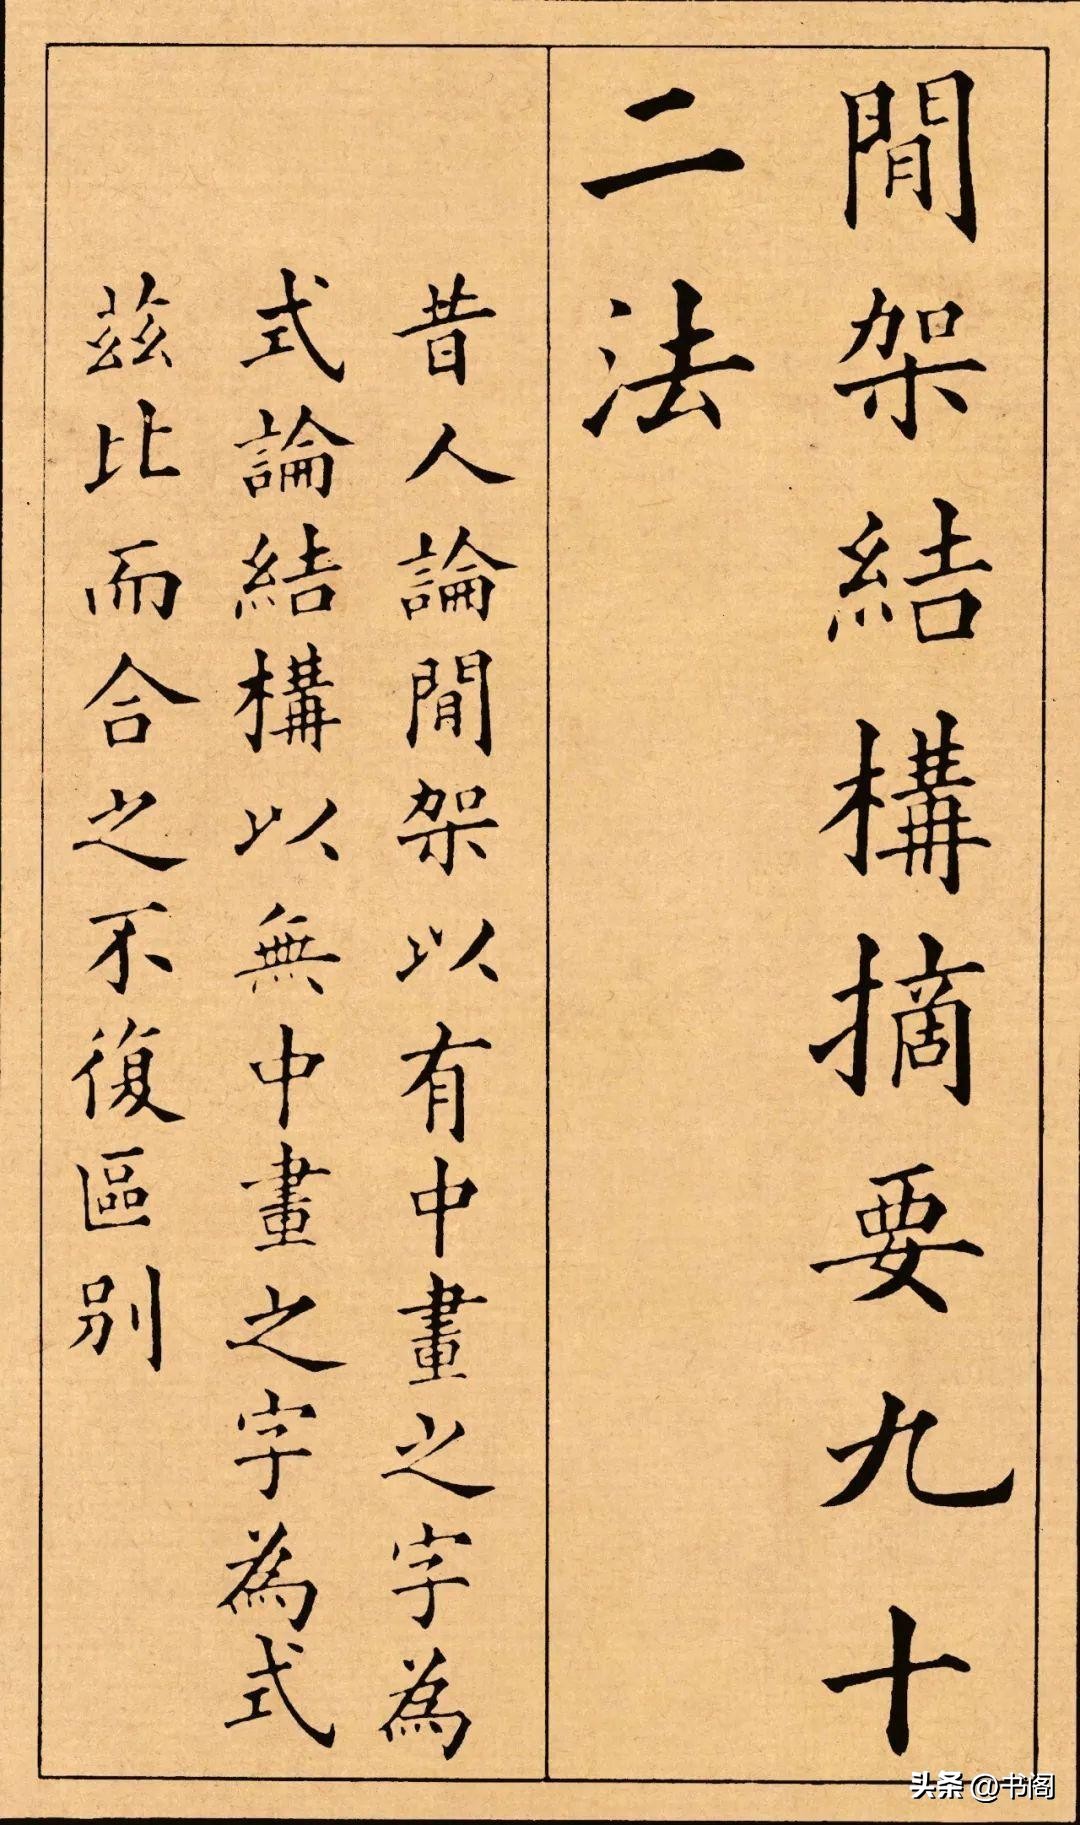 閒架結構摘要九十
二法
昔人論閒架以有中畫之字為
式論結構以無中畫之字為式
茲比而合之不復區別
头条 @书阁